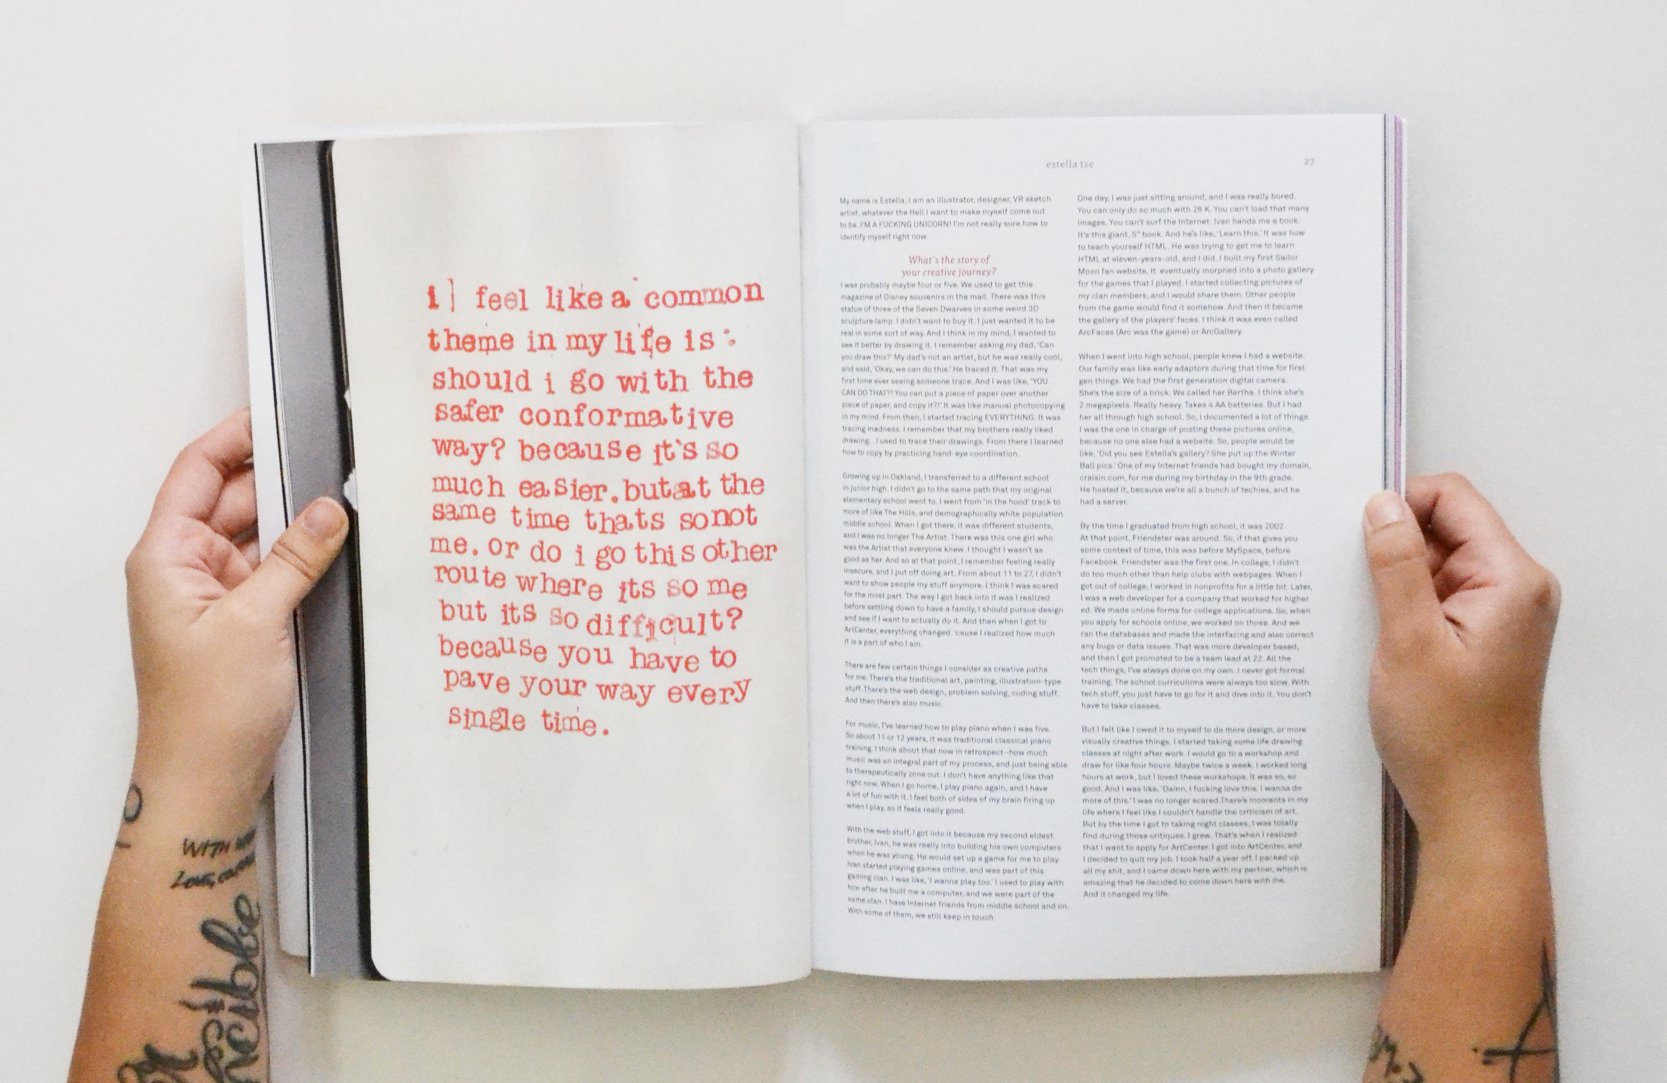 i feel like a common
theme in my life is:
should i go with the
safer conformative
way? because it's so
much easier. but at the
same time thats so not
me. or do i go this other
route where its so me
but its so difficult?
because you have to
pave your way every
single time.
estella tse
27
My name is Estella. I am an illustrator, designer, VR sketch
artist, whatever the Hell I want to make myself come out
to be. I'M A FUCKING UNICORN! I'm not really sure how to
identify myself right now.
What's the story of
your creative journey?
I was probably maybe four or five. We used to get this
magazine of Disney souvenirs in the mail. There was this
statue of three of the Seven Dwarves in some weird 3D
sculpture lamp. I didn't want to buy it. I just wanted it to be
real in some sort of way. And I think in my mind, I wanted to
see it better by drawing it. I remember asking my dad, 'Can
you draw this?' My dad's not an artist, but he was really cool,
and said, 'Okay, we can do this.' He traced it. That was my
first time ever seeing someone trace. And I was like, 'YOU
CAN DO THAT?! You can put a piece of paper over another
piece of paper, and copy it?!' It was like manual photocopying
in my mind. From then, I started tracing EVERYTHING. It was
tracing madness. I remember that my brothers really liked
drawing. I used to trace their drawings. From there I learned
how to copy by practicing hand-eye coordination.
Growing up in Oakland, I transferred to a different school
in junior high. I didn't go to the same path that my original
elementary school went to. I went from 'in the hood' track to
more of like The Hills, and demographically white population
middle school. When I got there, it was different students,
and I was no longer The Artist. There was this one girl who
was the Artist that everyone knew. I thought I wasn't as
good as her. And so at that point, I remember feeling really
insecure, and I put off doing art. From about 11 to 27, I didn't
want to show people my stuff anymore. I think I was scared
for the most part. The way I got back into it was I realized
before settling down to have a family, I should pursue design
and see if I want to actually do it. And then when I got to
ArtCenter, everything changed. 'cause I realized how much
it is a part of who I am.
There are few certain things I consider as creative paths
for me. There's the traditional art, painting, illustration-type
stuff. There's the web design, problem solving, coding stuff.
And then there's also music.
For music, I've learned how to play piano when I was five.
So about 11 or 12 years, it was traditional classical piano
training. I think about that now in retrospect–how much
music was an integral part of my process, and just being able
to therapeutically zone out. I don't have anything like that
right now. When I go home, I play piano again, and I have
a lot of fun with it. I feel both of sides of my brain firing up
when I play, so it feels really good.
With the web stuff, I got into it because my second eldest
brother, Ivan, he was really into building his own computers
when he was young. He would set up a game for me to play.
Ivan started playing games online, and was part of this
gaming clan. I was like, 'I wanna play too.' I used to play with
him after he built me a computer, and we were part of the
same clan. I have Internet friends from middle school and on.
With some of them, we still keep in touch.
One day, I was just sitting around, and I was really bored.
You can only do so much with 28 K. You can't load that many
images. You can't surf the Internet. Ivan hands me a book.
It's this giant, 5" book. And he's like, 'Learn this.' It was how
to teach yourself HTML. He was trying to get me to learn
HTML at eleven-years-old, and I did. I built my first Sailor
Moon fan website. It eventually morphed into a photo gallery
for the games that I played. I started collecting pictures of
my clan members, and I would share them. Other people
from the game would find it somehow. And then it became
the gallery of the players' faces. I think it was even called
ArcFaces (Arc was the game) or ArcGallery.
When I went into high school, people knew I had a website.
Our family was like early adaptors during that time for first
gen things. We had the first generation digital camera.
She's the size of a brick. We called her Bertha. I think she's
2 megapixels. Really heavy. Takes 4 AA batteries. But I had
her all through high school. So, I documented a lot of things.
I was the one in charge of posting these pictures online,
because no one else had a website. So, people would be
like, 'Did you see Estella's gallery? She put up the Winter
Ball pics.' One of my Internet friends had bought my domain,
cralsin.com, for me during my birthday in the 9th grade.
He hosted it, because we're all a bunch of techies, and he
had a server.
By the time I graduated from high school, it was 2002.
At that point, Friendster was around. So, if that gives you
some context of time, this was before MySpace, before
Facebook. Friendster was the first one. In college, I didn't
do too much other than help clubs with webpages. When I
got out of college, I worked in nonprofits for a little bit. Later,
I was a web developer for a company that worked for higher
ed. We made online forms for college applications. So, when
you apply for schools online, we worked on those. And we
ran the databases and made the interfacing and also correct
any bugs or data issues. That was more developer based,
and then I got promoted to be a team lead at 22. All the
tech things, I've always done on my own. I never got formal
training. The school curriculums were always too slow. With
tech stuff, you just have to go for it and dive into it. You don't
have to take classes.
But I felt like I owed it to myself to do more design, or more
visually creative things. I started taking some life drawing
classes at night after work. I would go to a workshop and
draw for like four hours. Maybe twice a week. I worked long
hours at work, but I loved these workshops. It was so, so
good. And I was like, 'Damn, I fucking love this. I wanna do
more of this.' I was no longer scared. There's moments in my
life where I feel like I couldn't handle the criticism of art.
But by the time I got to taking night classes, I was totally
find during those critiques. I grew. That's when I realized
that I want to apply for ArtCenter. I got into ArtCenter, and
I decided to quit my job. I took half a year off. I packed up
all my shit, and I came down here with my partner, which is
amazing that he decided to come down here with me.
And it changed my life.
WITH
LOVE,